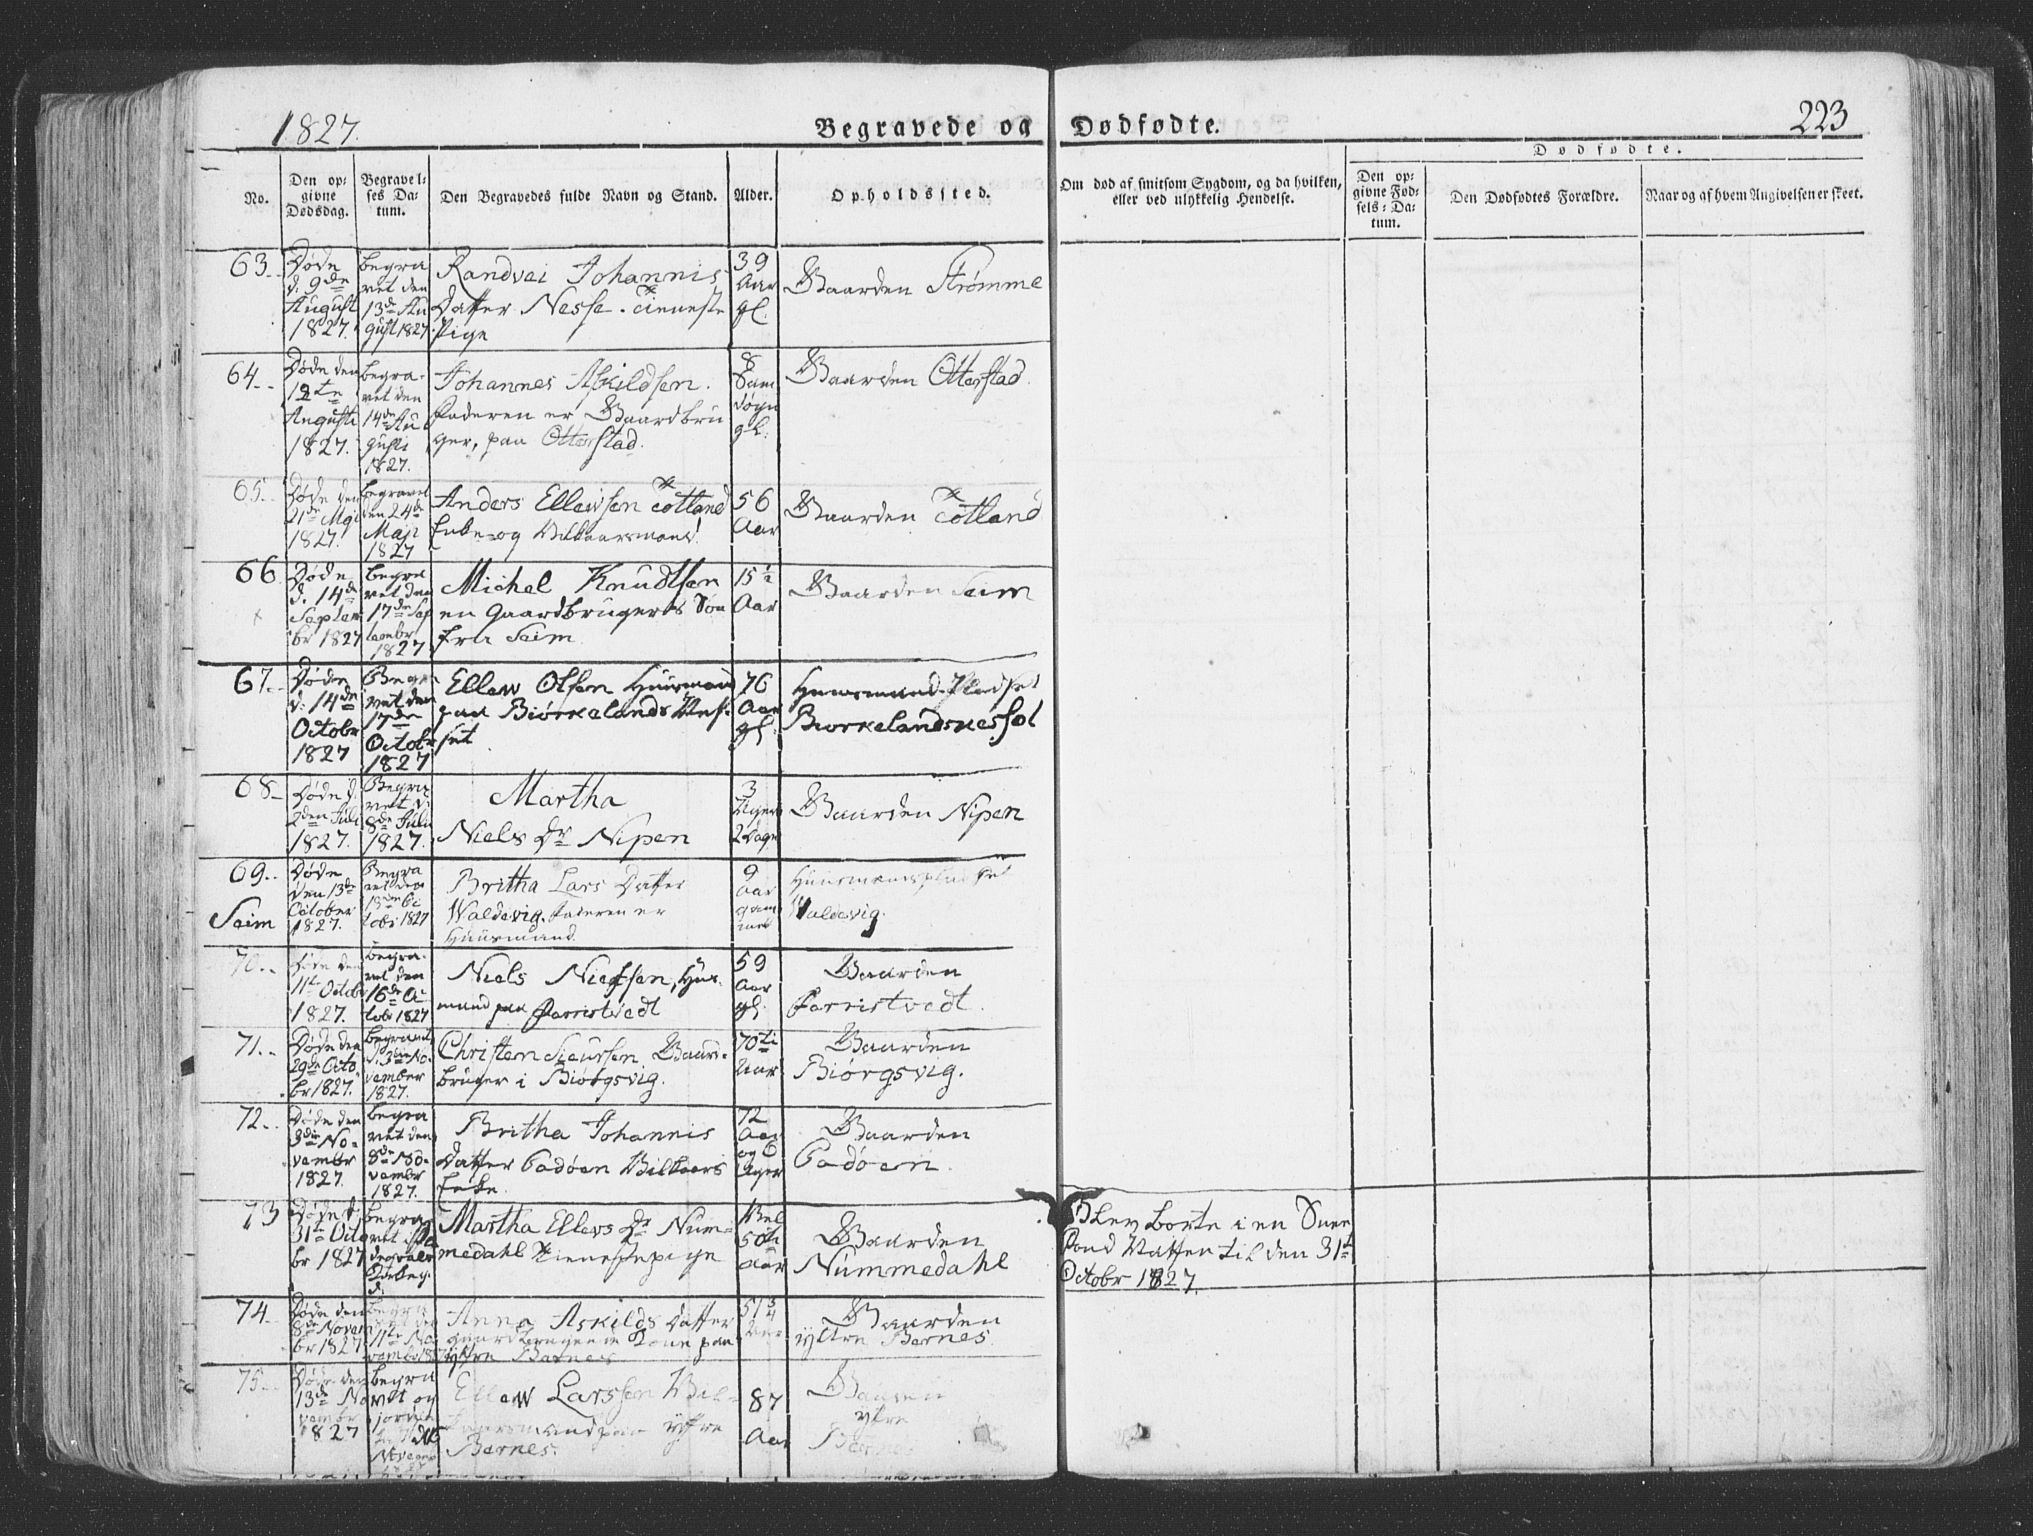 1827.
Begravede og Dødfødte.
223
Dødfødte.
No.
Den op-
givne
Dødsdag.
Begravel-
ses Da-
tum.
Den Begravedes fulde Navn og Stand.
Alder.
Opholdssted.
Om død af smitsom Sygdom, og da hvilken,
eller ved ulykkelig Hendelse.
Den op-
givne Fød-
sels-Da-
tum.
Den Dødfødtes Forældre.
Naar og af hvem Angivelsen er skeet.
63.
Døde
d. 9de
August
1827.
begra
vet den
13de Au
gust 1827
Randvei Johannis
Datter Nesse. Tieneste
Pige
39
Aar
gl.
Gaarden Strømme
64.
Døde den
12te
Augusti
1827.
begra-
vet den
14de Au
gusti
1827.
Johannes Askildsen.
Faderen er Gaardbru
ger, paa Otterstad.
8
Sam
døgn
gl.
Gaarden Otterstad.
65.
Døde den
21de Maji
1827.
begravet
den 24de
Maji
1827
Anders Ellewsen Totland
Enke og Vilkaarsmand
56
Aar
Gaarden Totland
66
Døde
d. 14de
Septem
br 1827
begra
vet den
17de Sep
tembr
1827
Michel Knudtsen
en Gaardbrugers Søn
fra Seim
15½
Aar
Gaarden Seim
67.
Døde
d. 14de
Octobr
1827
Begra
vet den
17de
Octobr
1827
Ellew Olsen Huusmand
paa Biørkelands Nes-
set
76
Aar
gl.
Huusmands Pladset
Biorkelandsnesset
68
Døde d.
2den Juli
1827.
Begra
vet d.
8de Julii
1827.
Martha
Niels Dr Nipen
3
Uger
2 Dage
Gaarden Nipen
69.
Seim
Døde
den 13de
October
1827.
Begra
vet den
18de Oc
tobr 1827
Britha Lars Datter
Waldevig. Faderen er
Huusmand
9
Aar
gam
mel
Huusmandspladset
Waldevig.
70.
Døde den
11te Octobr
1827.
begra-
vet den
16de Oc
tobr 1827
Niels Nielssen, Huus-
mand paa Farristvedt
59
Aar
gl.
Gaarden
Farristvedt.
71.
Døde den
29de Octo
br 1827.
begravet
d. 3die No-
vember
1827.
Christen Siursen Gaard-
bruger i Biørgsvig.
70ti
Aar
Gaarden
Biørgsvig.
72.
Døde den
3die No-
vembr
1827.
begra
vet den
8de No-
vembr
1827.
Britha Johannis
Datter Padøen Vilkaars
Enke.
72
Aar
og 6
Uger
Gaarden
Padøen.
73
Døde d.
31te Octo
br 1827
begra
vet
Martha Ellews Dr Num-
medahl Tienestepige
50ti
Aar
Gaarden
Nummedahl
Blev borte i en Snee
Fond Natten til den 31te
Octobr 1827.
74.
Døde den
8de Novem
br 1827
begra
11te No
vembr 1827
Anna Askilds Datter
gaardbrugerens Kone paa
ÿttre Bernes
51¾
Aar
Gaarden
ÿttre Bernes.
75.
Døde den
13de No
vembr
1827
begra
vet og
Ellew Larssen Vil-
kaarsmand paa ÿttre
Bernes.
87
Aar
Gaarden
ÿttre
Bernes